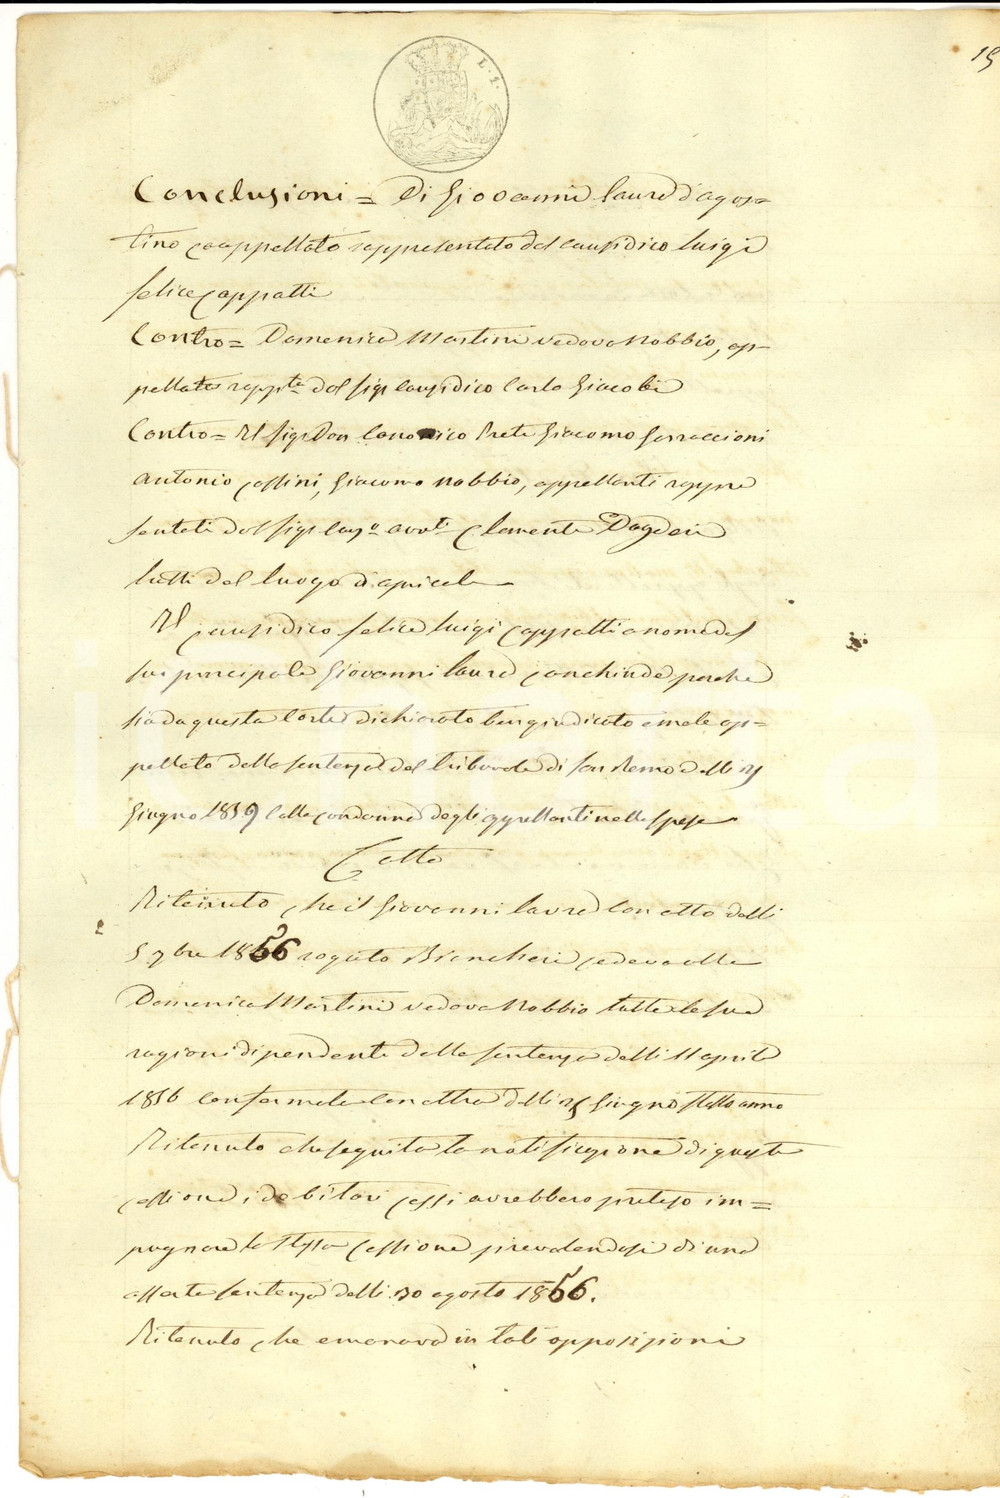 15
L. 1.
Conclusioni = Di Giovanni Laura d'agos=
tino coappellato rappresentato dal causidico Luigi
felice Cappatti
Contro = Domenica Martini vedova Nobbio, ap=
pellata rappta dal sigr causidico Carlo Giacobi
Contro = Il sigr Don Canonico Prete Giacomo
Antonio Cassini, Giacomo Nobbio, appellanti rappre
sentati dal sigr avvto Clemente
tutti del luogo d'apricale
Il causidico felice Luigi Cappatti a nome del
suo principale Giovanni Laura conchiude perche
sia da questa Corte dichiarato ben giudicato e male ap=
pellato dalla sentenza del tribunale di San Remo delli 25
Giugno 1859 colla condanna degli appellanti nelle spese
Fatto
Ritenuto che il Giovanni Laura con atto delli
5 9bre 1856 rogato Biancheri cedeva alla
Domenica Martini vedova Nobbio tutte le sue
ragioni dipendenti dalla sentenza delli 11 aprile
1856 confermata con altra delli 25 Giugno stesso anno
Ritenuto che seguita la notificazione di questa
cessione i debitori cessi avrebbero preteso im=
pugnare la stessa cessione prevalendosi di una
asserta sentenza delli 30 agosto 1856.
Ritenuto che emanava in tali opposizioni